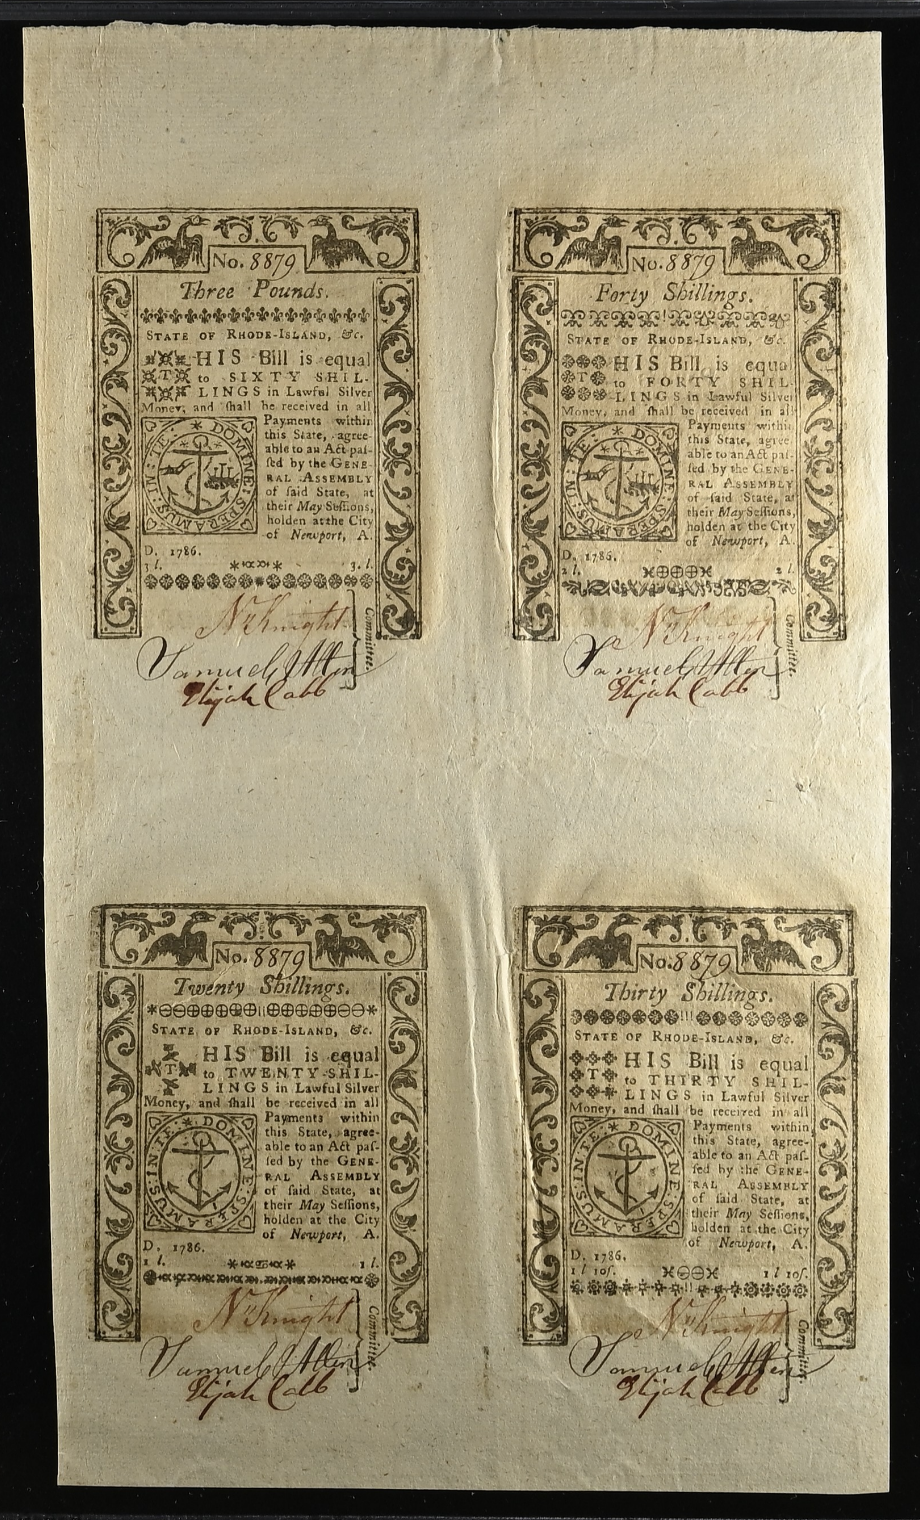 No. 8879
Three Pounds.
STATE OF RHODE-ISLAND, &c.
THIS Bill is equal
to SIXTY SHIL-
LINGS in Lawful Silver
Money, and ſhall be received in all
Payments within
this State, agree-
able to an Act paſ-
ſed by the GENE-
RAL ASSEMBLY
of ſaid State, at
their May Seſſions,
holden at the City
of Newport, A.
D. 1786.
3 l. 3. l.
DOMINE: SPERAMUS: IN: TE:
N Knight
Samuel Allen
Elijah Cobb
Committee.
No. 8879
Forty Shillings.
STATE OF RHODE-ISLAND, &c.
THIS Bill is equal
to FORTY SHIL-
LINGS in Lawful Silver
Money, and ſhall be received in all
Payments within
this State, agree-
able to an Act paſ-
ſed by the GENE-
RAL ASSEMBLY
of ſaid State, at
their May Seſſions,
holden at the City
of Newport, A.
D. 1786.
2 l. 2 l.
DOMINE: SPERAMUS: IN: TE:
N Knight
Samuel Allen
Elijah Cobb
Committee.
No. 8879
Twenty Shillings.
STATE OF RHODE-ISLAND, &c.
THIS Bill is equal
to TWENTY SHIL-
LINGS in Lawful Silver
Money, and ſhall be received in all
Payments within
this State, agree-
able to an Act paſ-
ſed by the GENE-
RAL ASSEMBLY
of ſaid State, at
their May Seſſions,
holden at the City
of Newport, A.
D. 1786.
1 l. 1 l.
DOMINE: SPERAMUS: IN TE:
N Knight
Samuel Allen
Elijah Cobb
Committee.
No. 8879
Thirty Shillings.
STATE OF RHODE-ISLAND, &c.
THIS Bill is equal
to THIRTY SHIL-
LINGS in Lawful Silver
Money, and ſhall be received in all
Payments within
this State, agree-
able to an Act paſ-
ſed by the GENE-
RAL ASSEMBLY
of ſaid State, at
their May Seſſions,
holden at the City
of Newport, A.
D. 1786.
1 l 10ſ. 1 l 10ſ.
DOMINE: SPERAMUS: IN TE:
N Knight
Samuel Allen
Elijah Cobb
Committee.